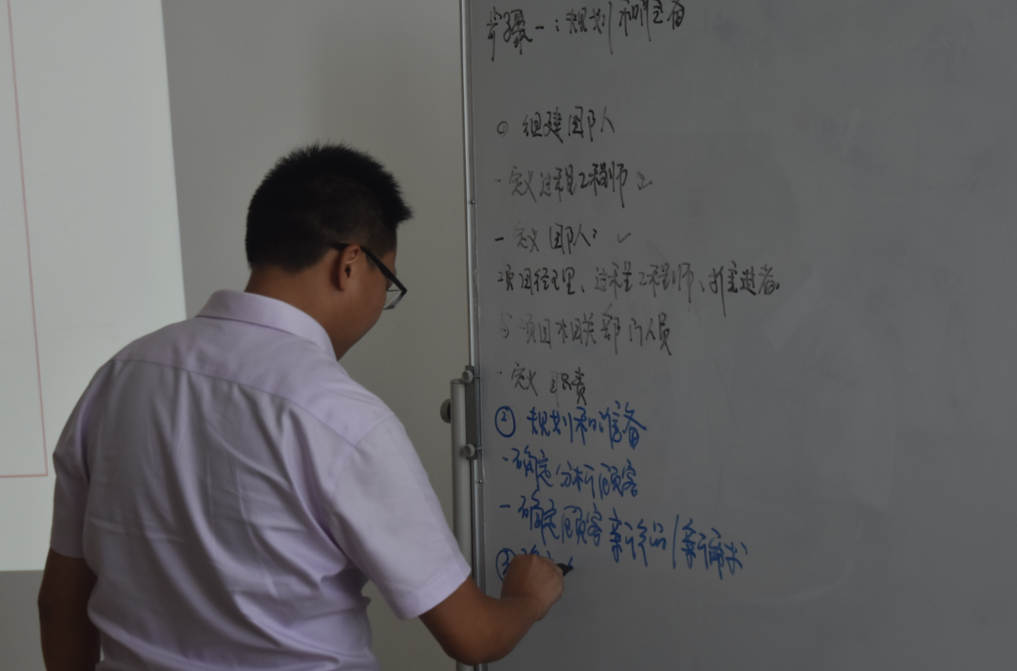 步骤一：规划和准备
○ 组建团队
·定义过程工程师
- 定义团队： ✓
项目经理、过程工程师、推进者。
与项目相关部门人员
·定义职责
② 规划和准备
- 确定/分析顾客
- 确定顾客新产品/新需求
③ 确定